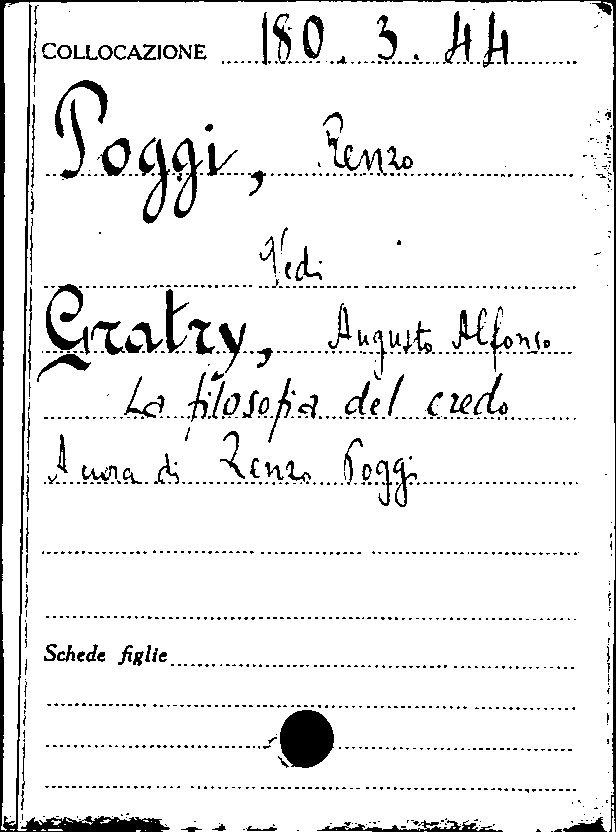 COLLOCAZIONE 180. 3. 44
Poggi, Renzo
Vedi
Gratry, Augusto Alfonso
La filosofia del credo
A cura di Renzo Poggi
Schede figlie